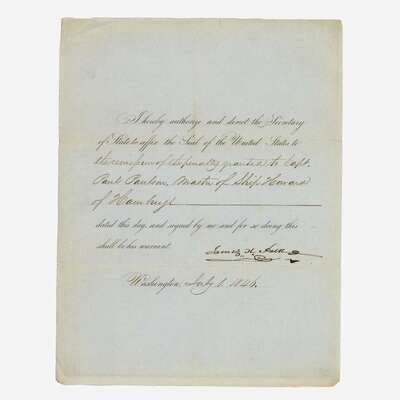 I hereby authorize and direct the Secretary
of State to affix the Seal of the United States to
the remission of the penalty granted to Capt.
Paul Paulsen, Master of Ship Howard
of Hamburg
dated this day, and signed by me and for so doing this
shall be his warrant.
James K. Polk
Washington, July 1, 1846.